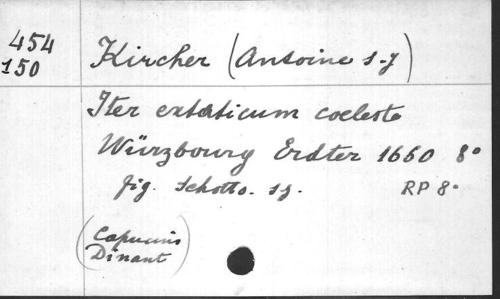 454
150
Kircher (Antoine s.j)
Iter extaticum coeleste
Würzbourg Erdter 1660 8°
fig. Schotto. s.j.
RP 8°
(Capucins
Dinant)